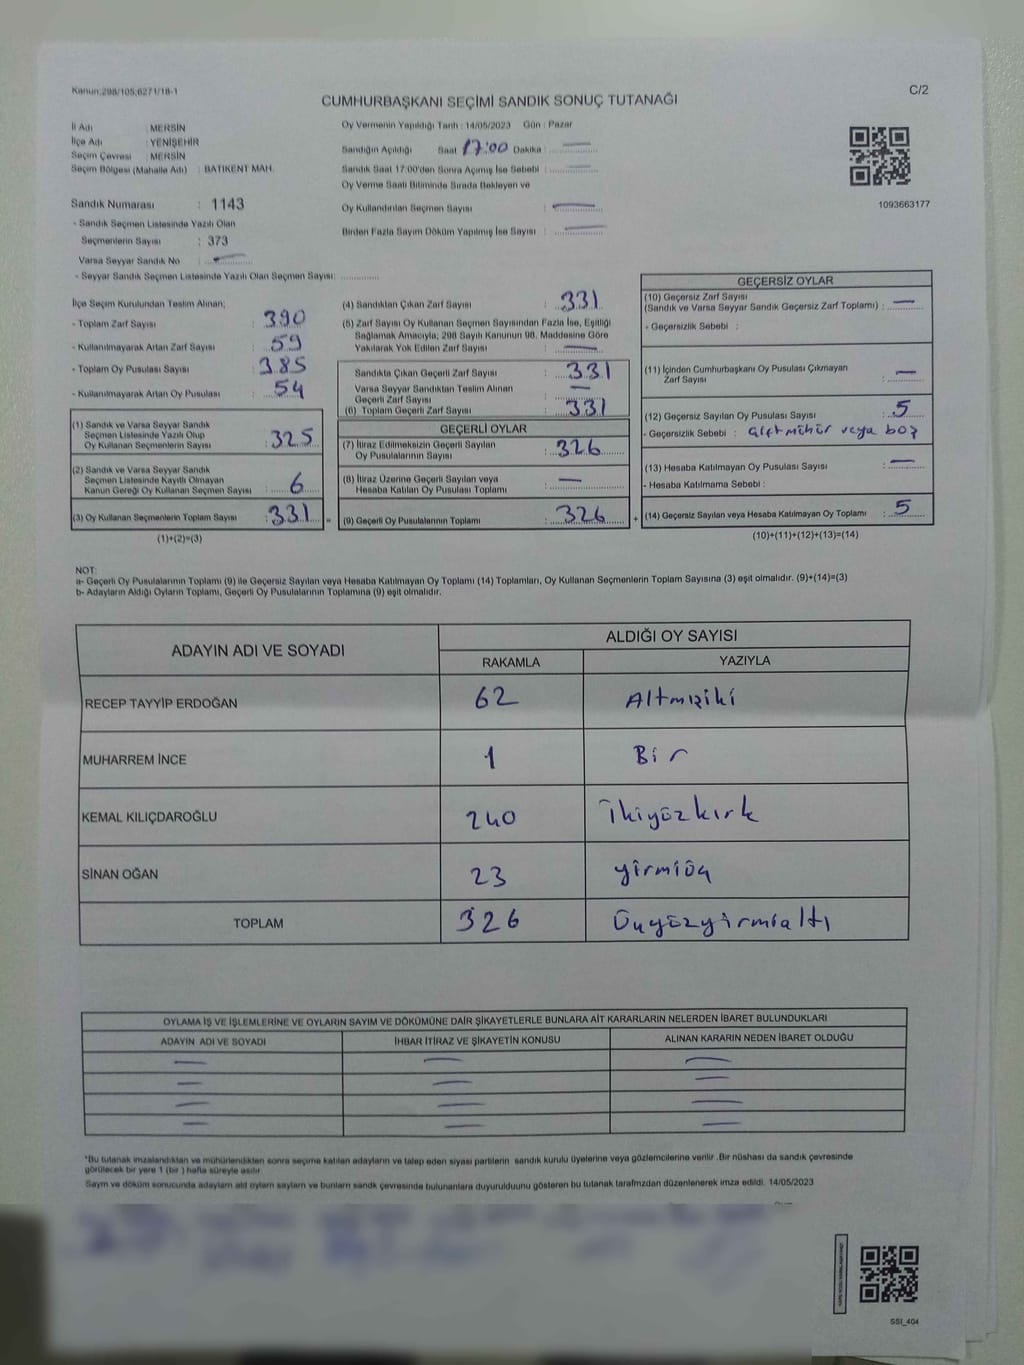 Kanun:298/105,6271/18-1
C/2
CUMHURBAŞKANI SEÇİMİ SANDIK SONUÇ TUTANAĞI
İl Adı : MERSİN
İlçe Adı : YENİŞEHİR
Seçim Çevresi : MERSİN
Seçim Bölgesi (Mahalle Adı) : BATIKENT MAH.
Oy Vermenin Yapıldığı Tarih : 14/05/2023 Gün : Pazar
Sandığın Açıldığı Saat 17:00 Dakika : —
Sandık Saat 17:00'den Sonra Açılmış İse Sebebi : —
Oy Verme Saati Bitiminde Sırada Bekleyen ve
Oy Kullandırılan Seçmen Sayısı : —
Birden Fazla Sayım Döküm Yapılmış İse Sayısı : —
1093663177
Sandık Numarası : 1143
- Sandık Seçmen Listesinde Yazılı Olan
Seçmenlerin Sayısı : 373
Varsa Seyyar Sandık No : —
- Seyyar Sandık Seçmen Listesinde Yazılı Olan Seçmen Sayısı: ..............
İlçe Seçim Kurulundan Teslim Alınan;
- Toplam Zarf Sayısı : 390
- Kullanılmayarak Artan Zarf Sayısı : 59
- Toplam Oy Pusulası Sayısı : 385
- Kullanılmayarak Artan Oy Pusulası : 54
(1) Sandık ve Varsa Seyyar Sandık
Seçmen Listesinde Yazılı Olup
Oy Kullanan Seçmenlerin Sayısı : 325
(2) Sandık ve Varsa Seyyar Sandık
Seçmen Listesinde Kayıtlı Olmayan
Kanun Gereği Oy Kullanan Seçmen Sayısı : 6
(3) Oy Kullanan Seçmenlerin Toplam Sayısı : 331
(1)+(2)=(3)
(4) Sandıktan Çıkan Zarf Sayısı : 331
(5) Zarf Sayısı Oy Kullanan Seçmen Sayısından Fazla İse, Eşitliği
Sağlamak Amacıyla; 298 Sayılı Kanunun 98. Maddesine Göre
Yakılarak Yok Edilen Zarf Sayısı : —
Sandıkta Çıkan Geçerli Zarf Sayısı : 331
Varsa Seyyar Sandıktan Teslim Alınan
Geçerli Zarf Sayısı : —
(6) Toplam Geçerli Zarf Sayısı : 331
GEÇERLİ OYLAR
(7) İtiraz Edilmeksizin Geçerli Sayılan
Oy Pusulalarının Sayısı : 326
(8) İtiraz Üzerine Geçerli Sayılan veya
Hesaba Katılan Oy Pusulası Toplamı : —
= (9) Geçerli Oy Pusulalarının Toplamı : 326 +
GEÇERSİZ OYLAR
(10) Geçersiz Zarf Sayısı
(Sandık ve Varsa Seyyar Sandık Geçersiz Zarf Toplamı) : —
- Geçersizlik Sebebi :
(11) İçinden Cumhurbaşkanı Oy Pusulası Çıkmayan
Zarf Sayısı : —
(12) Geçersiz Sayılan Oy Pusulası Sayısı : 5
- Geçersizlik Sebebi : Çift mühür veya boş
(13) Hesaba Katılmayan Oy Pusulası Sayısı : —
- Hesaba Katılmama Sebebi :
(14) Geçersiz Sayılan veya Hesaba Katılmayan Oy Toplamı : 5
(10)+(11)+(12)+(13)=(14)
NOT:
a- Geçerli Oy Pusulalarının Toplamı (9) ile Geçersiz Sayılan veya Hesaba Katılmayan Oy Toplamı (14) Toplamları, Oy Kullanan Seçmenlerin Toplam Sayısına (3) eşit olmalıdır. (9)+(14)=(3)
b- Adayların Aldığı Oyların Toplamı, Geçerli Oy Pusulalarının Toplamına (9) eşit olmalıdır.
ADAYIN ADI VE SOYADI ALDIĞI OY SAYISI
RAKAMLA YAZIYLA
RECEP TAYYİP ERDOĞAN 62 Altmışiki
MUHARREM İNCE 1 Bir
KEMAL KILIÇDAROĞLU 240 İkiyüzkırk
SİNAN OĞAN 23 yirmiüç
TOPLAM 326 Üçyüzyirmialtı
OYLAMA İŞ VE İŞLEMLERİNE VE OYLARIN SAYIM VE DÖKÜMÜNE DAİR ŞİKAYETLERLE BUNLARA AİT KARARLARIN NELERDEN İBARET BULUNDUKLARI
ADAYIN ADI VE SOYADI İHBAR İTİRAZ VE ŞİKAYETİN KONUSU ALINAN KARARIN NEDEN İBARET OLDUĞU
— — —
— — —
— — —
— — —
*Bu tutanak imzalandıktan ve mühürlendikten sonra seçime katılan adayların ve talep eden siyasi partilerin sandık kurulu üyelerine veya gözlemcilerine verilir .Bir nüshası da sandık çevresinde
görülecek bir yere 1 (bir ) hafta süreyle asılır.
Sayım ve döküm sonucunda adayların aldı oyların sayıların ve bunların sandk çevresinde bulunanlara duyurulduunu gösteren bu tutanak tarafmzdan düzenlenerek imza edildi. 14/05/2023
SSI_404